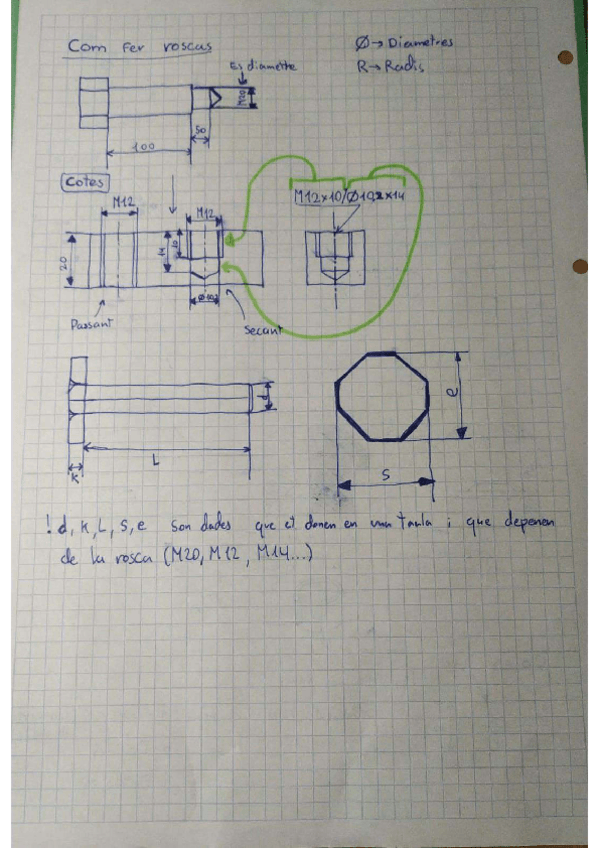 Com fer roscas
Ø→Diametres
R→Radis
Es diametre
M20
50
100
Cotes
M12
M12
M12x10/Ø10,2x14
20
14
10
Passant
Secant
d
L
K
e
S
! d, K, L, S, e son dades que et donen en una taula i que depenen
de la rosca (M20, M12, M14...)